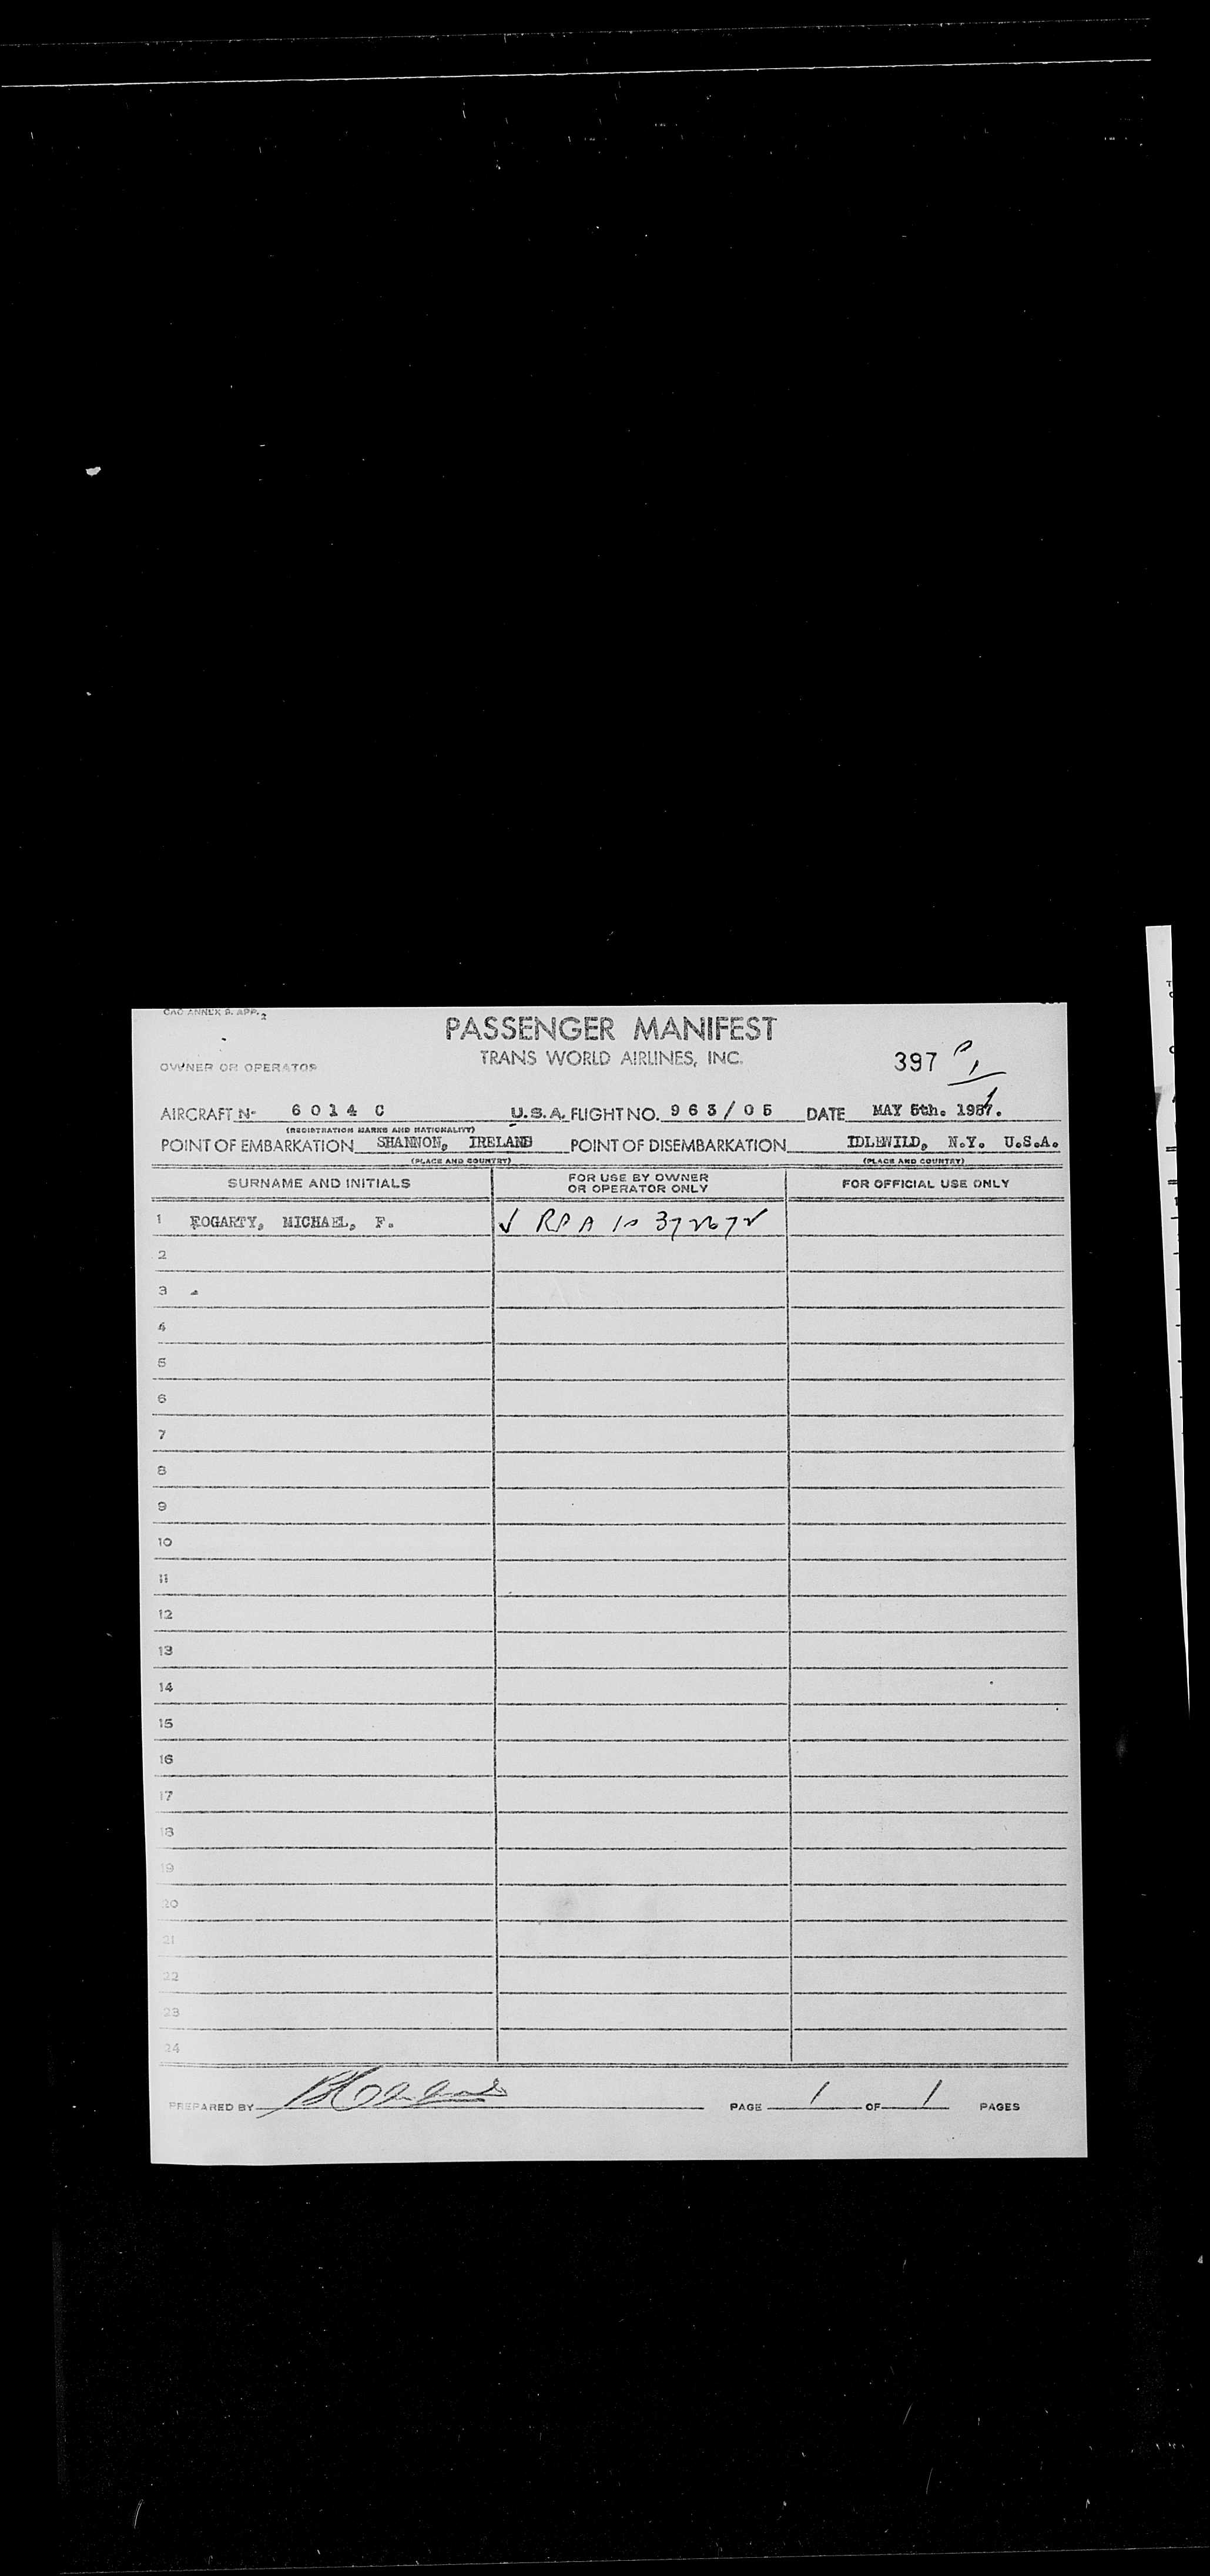 CAO ANNEX 9. APP. 2
PASSENGER MANIFEST
TRANS WORLD AIRLINES, INC.
OWNER OR OPERATOR
397
AIRCRAFT N- 6 0 1 4 C U.S.A. FLIGHT NO. 9 6 3 / 0 5 DATE MAY 5th. 1957.
(REGISTRATION MARKS AND NATIONALITY)
POINT OF EMBARKATION SHANNON, IRELAND POINT OF DISEMBARKATION IDLEWILD, N.Y. U.S.A.
(PLACE AND COUNTRY) (PLACE AND COUNTRY)
SURNAME AND INITIALS FOR USE BY OWNER OR OPERATOR ONLY FOR OFFICIAL USE ONLY
1 FOGARTY, MICHAEL, F. ✓
2
3
4
5
6
7
8
9
10
11
12
13
14
15
16
17
18
19
20
21
22
23
24
PREPARED BY PAGE 1 OF 1 PAGES